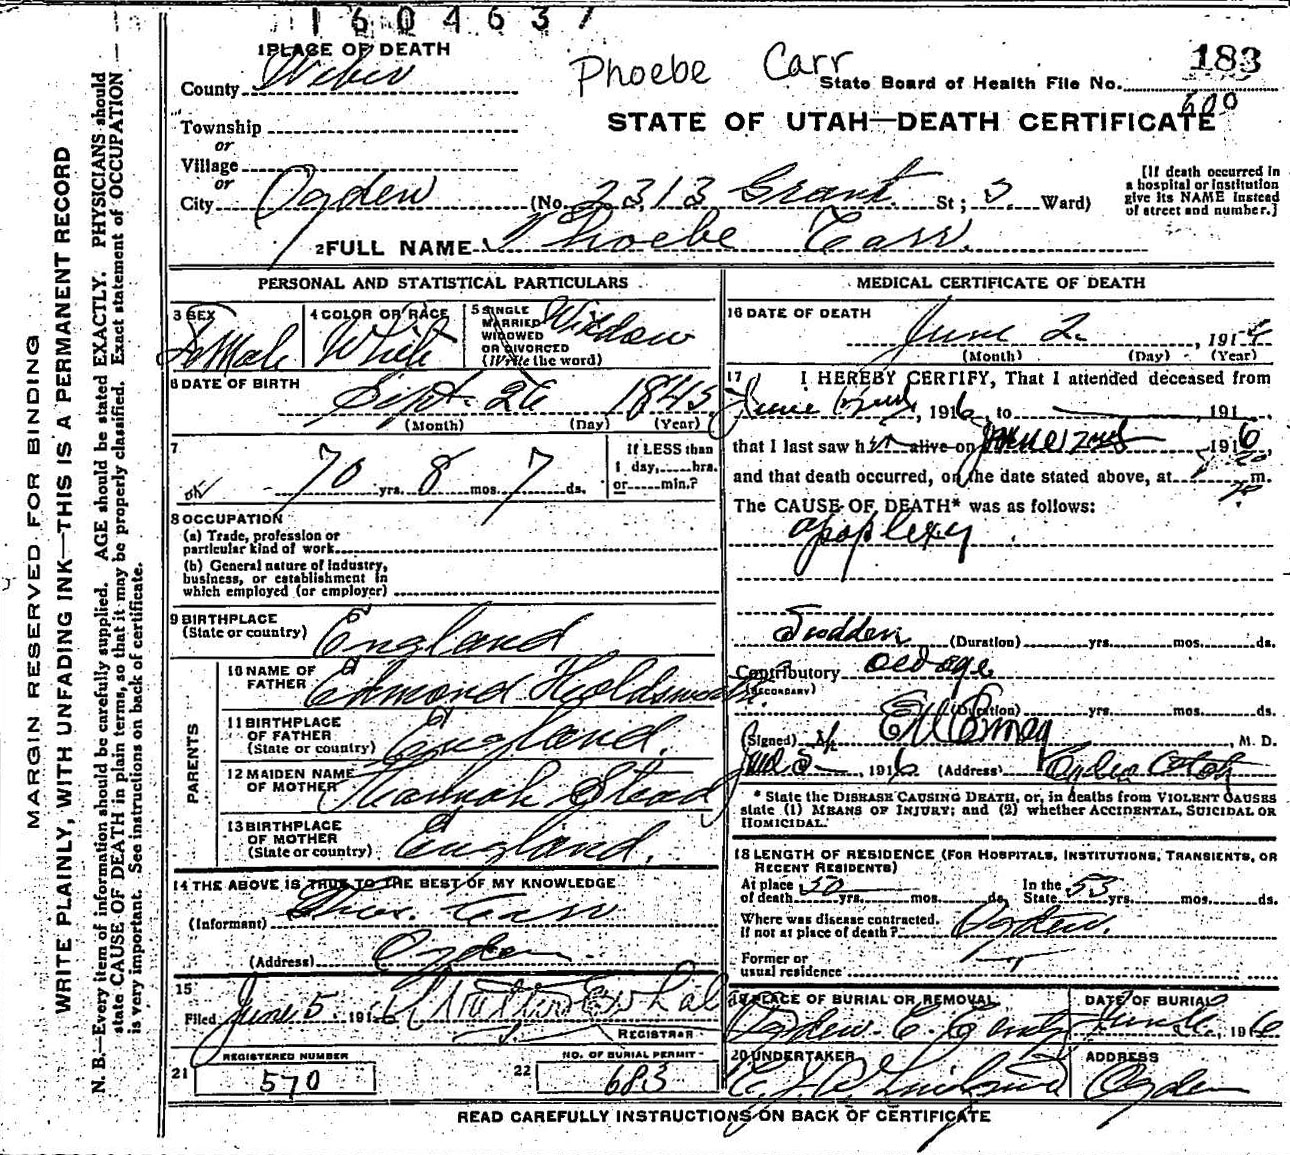 1604637
1 PLACE OF DEATH
Phoebe Carr
183
County Weber
State Board of Health File No. 600
Township
STATE OF UTAH—DEATH CERTIFICATE
or
Village
or
City Ogden (No. 2313 Grant St; 3. Ward)
[If death occurred in
a hospital or institution
give its NAME instead
of street and number.]
2 FULL NAME Phoebe Carr.
PERSONAL AND STATISTICAL PARTICULARS
3 SEX
feMale
4 COLOR OR RACE
White
5 SINGLE
MARRIED
WIDOWED
OR DIVORCED
(Write the word)
Widow
6 DATE OF BIRTH
Sept. 26 1845
(Month) (Day) (Year)
7
70 yrs. 8 mos. 7 ds.
If LESS than
1 day,......hrs.
or......min.?
8 OCCUPATION
(a) Trade, profession or
particular kind of work
(b) General nature of industry,
business, or establishment in
which employed (or employer)
9 BIRTHPLACE
(State or country) England
PARENTS
10 NAME OF
FATHER Edmond
11 BIRTHPLACE
OF FATHER
(State or country) England.
12 MAIDEN NAME
OF MOTHER Hannah Stead
13 BIRTHPLACE
OF MOTHER
(State or country) England.
14 THE ABOVE IS TRUE TO THE BEST OF MY KNOWLEDGE
(Informant) Thos. Carr
(Address) Ogden
15
Filed June 5, 1916
REGISTRAR
REGISTERED NUMBER
21 570
NO. OF BURIAL PERMIT
22 683
MEDICAL CERTIFICATE OF DEATH
16 DATE OF DEATH
June 2. 191
(Month) (Day) (Year)
17 I HEREBY CERTIFY, That I attended deceased from
June 2nd, 1916, to 191
that I last saw h alive on June 2nd 1916
and that death occurred, on the date stated above, at m.
The CAUSE OF DEATH* was as follows:
apoplexy
Sudden (Duration) yrs. mos. ds.
Contributory old age
(SECONDARY)
(Duration) yrs. mos. ds.
(Signed) , M. D.
1916 (Address)
* State the DISEASE CAUSING DEATH, or, in deaths from VIOLENT CAUSES
state (1) MEANS OF INJURY; and (2) whether ACCIDENTAL, SUICIDAL OR
HOMICIDAL.
18 LENGTH OF RESIDENCE (FOR HOSPITALS, INSTITUTIONS, TRANSIENTS, OR
RECENT RESIDENTS)
At place
of death 50 yrs. mos. ds.
In the
State 53 yrs. mos. ds.
Where was disease contracted.
if not at place of death? Ogden.
Former or
usual residence
19 PLACE OF BURIAL OR REMOVAL
Ogden
DATE OF BURIAL
June 1916
20 UNDERTAKER
ADDRESS
Ogden
READ CAREFULLY INSTRUCTIONS ON BACK OF CERTIFICATE
MARGIN RESERVED FOR BINDING
WRITE PLAINLY, WITH UNFADING INK—THIS IS A PERMANENT RECORD
N. B.—Every item of information should be carefully supplied. AGE should be stated EXACTLY. PHYSICIANS should
state CAUSE OF DEATH in plain terms, so that it may be properly classified. Exact statement of OCCUPATION
is very important. See instructions on back of certificate.